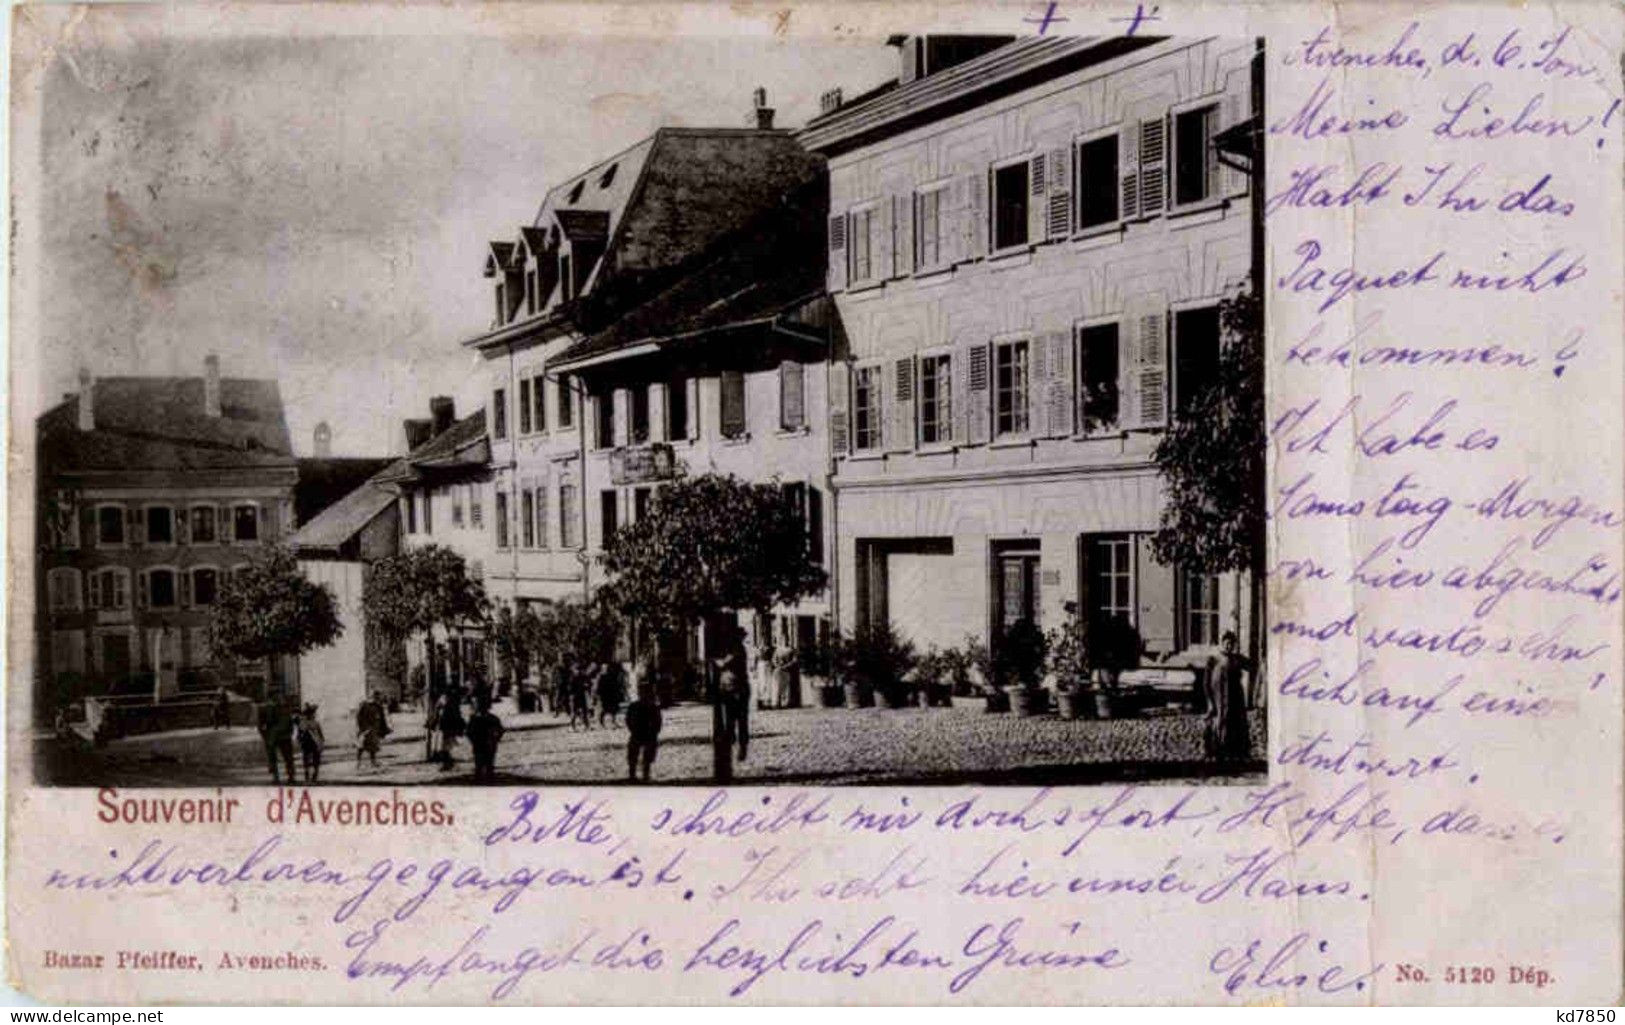 Avenches, d. 6. Jan.
Meine Lieben!
Habt Ihr das
Paquet nicht
bekommen?
Ich habe es
Samstag-Morgen
von hier abgeschickt
und warte sehn
lich auf eine
Antwort.
Souvenir d'Avenches.
Bitte, schreibt mir doch sofort. Hoffe, dass es
nicht verloren gegangen ist. Ihr seht hier unser Haus.
Empfanget die herzlichsten Grüsse Elise.
Bazar Pfeiffer, Avenches.
No. 5120 Dép.
kd7850